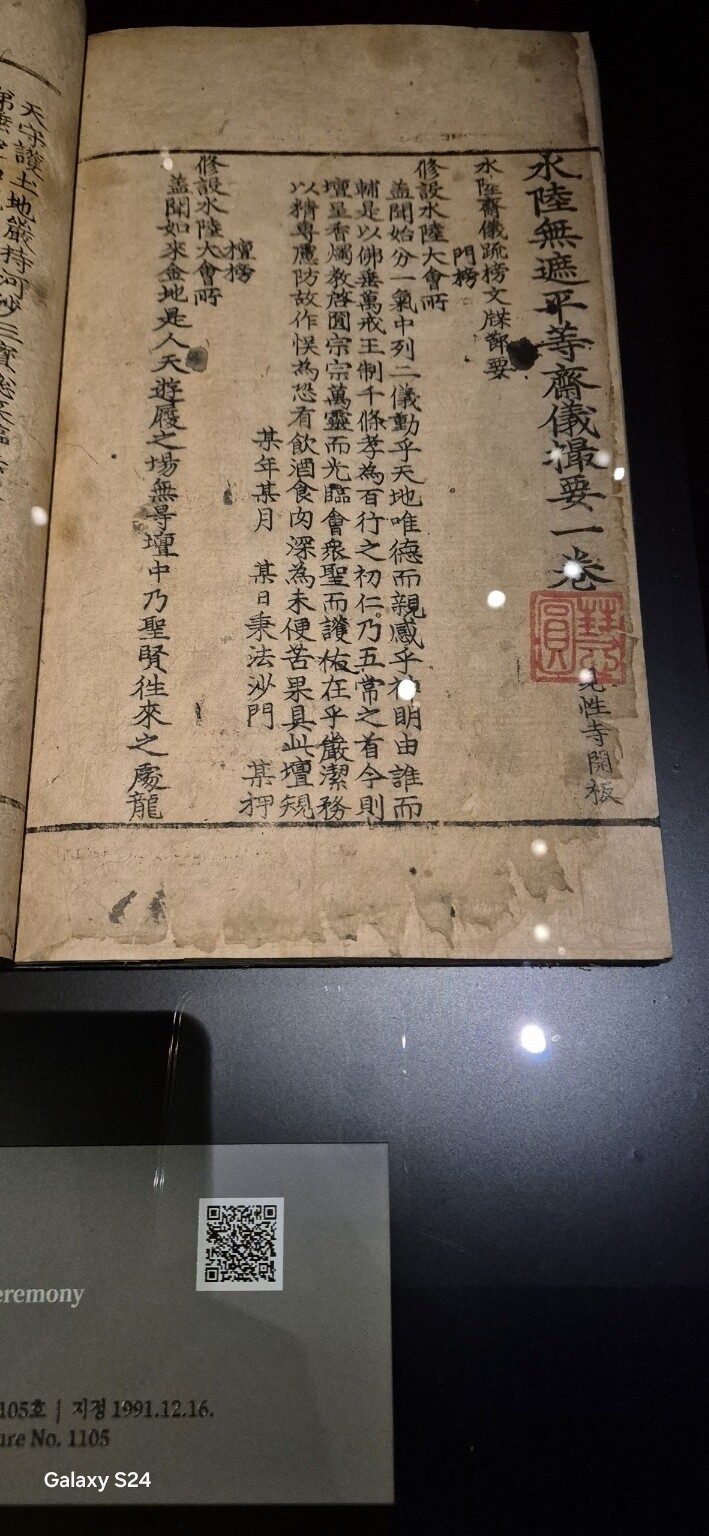 水陸無遮平等齋儀撮要一卷
見性寺開板
水陸齋儀䟽榜文牒節要
門榜
修設水陸大會所
盖聞始分一氣中列二儀動乎天地唯德而親感乎神明由誰而
輔是以佛垂萬戒王制千條孝為百行之初仁乃五常之首今則
壇呈香燭教啓圓宗宗萬靈而光臨會衆聖而護佑在乎嚴潔務
以精專慮防故作悮為恐有飲酒食肉深為未便苦果具此壇規
某年某月 某日秉法沙門 某押
檀榜
修設水陸大會所
盖聞如來金地是人天遊履之場無㝵壇中乃聖賢往來之處龍
天守護土地嚴持河沙三寶
eremony
105호 | 지정 1991.12.16.
ure No. 1105
Galaxy S24